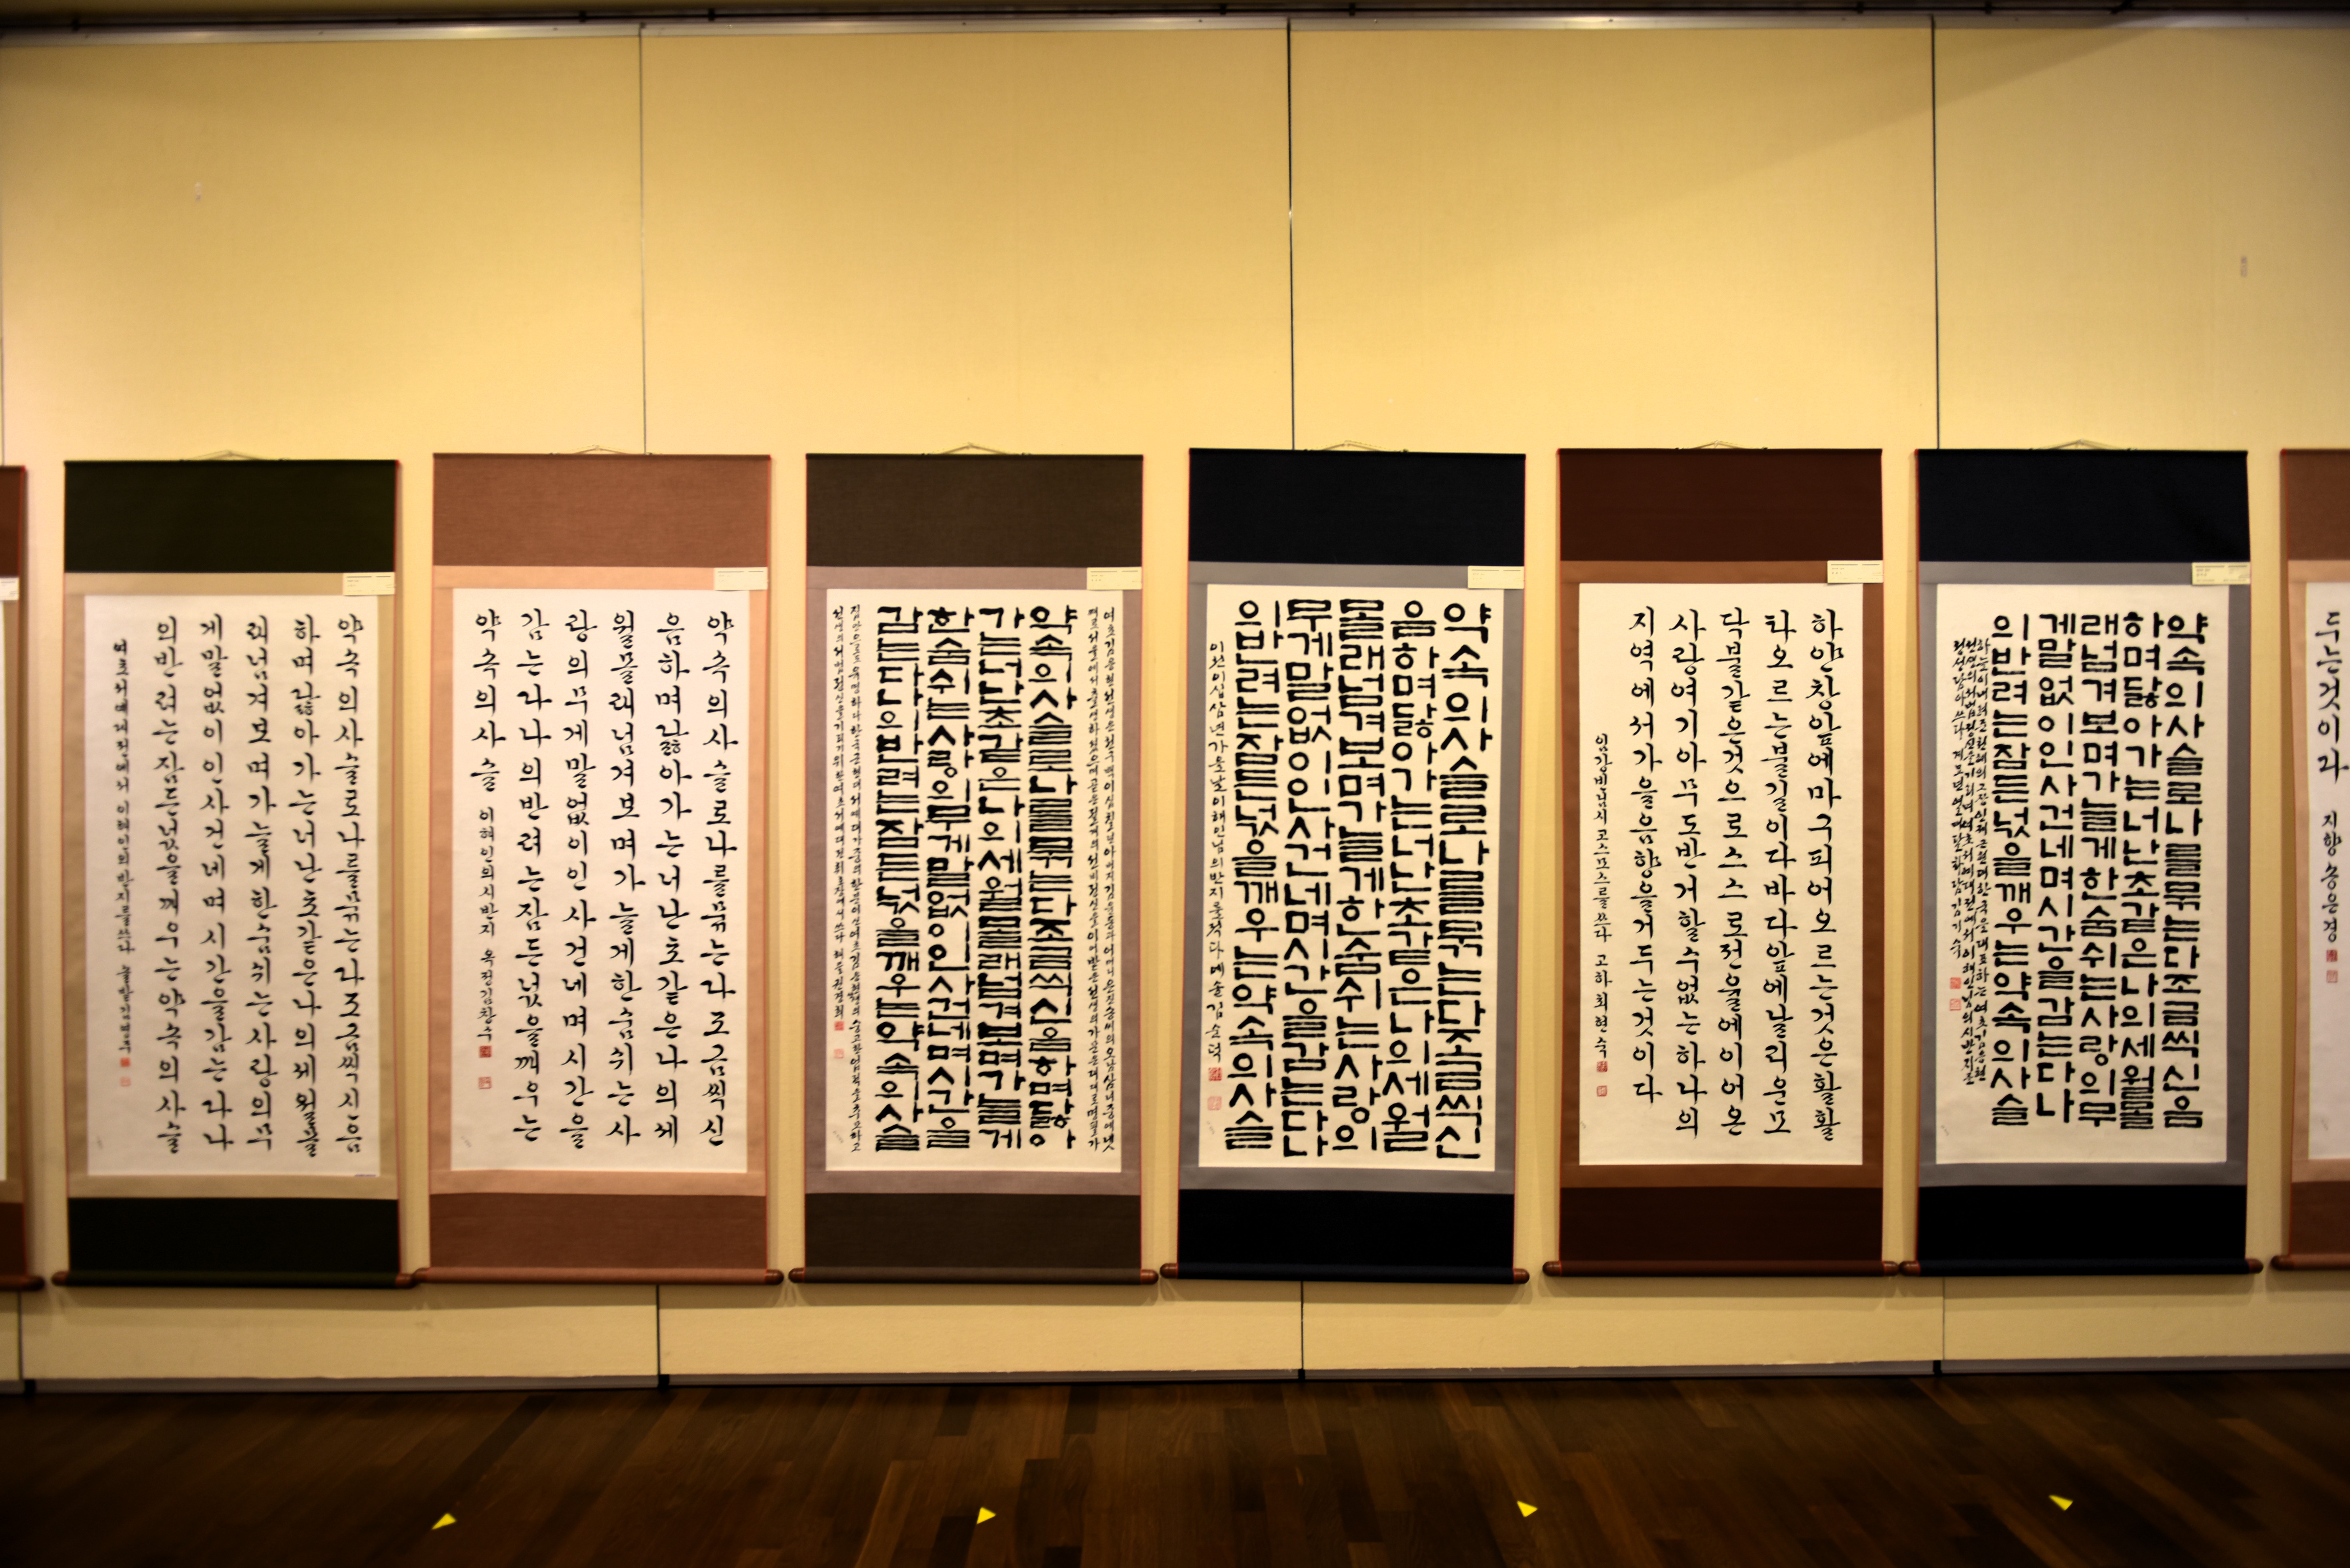 약속의사슬로나를묶는다조금씩신음
하며닳아가는너난초같은나의세월몰
래넘겨보며가늘게한숨쉬는사랑의무
게말없이인사건네며시간을감는다나
의반려는잠든넋을깨우는약속의사슬
약속의사슬로나를묶는다조금씩신
음하며닳아가는너난초같은나의세
월몰래넘겨보며가늘게한숨쉬는사
랑의무게말없이인사건네며시간을
감는다나의반려는잠든넋을깨우는
약속의사슬 이해인의시반지 옥정김창수
약속의사슬로나를묶는다조금씩신음하며닳아
가는너난초같은나의세월몰래넘겨보며가늘게
한숨쉬는사랑의무게말없이인사건네며시간을
감는다나의반려는잠든넋을깨우는약속의사슬
약속의사슬로나를묶는다조금씩신
음하며닳아가는너난초같은나의세월
몰래넘겨보며가늘게한숨쉬는사랑의
무게말없이인사건네며시간을감는다
나의반려는잠든넋을깨우는약속의사슬
이천이십삼년가을날이해인님의반지를적다예솔김순덕
하얀창앞에마구피어오르는것은활활
타오르는불길이다바다앞에달리운모
닥불같은것으로스스로전율에이어온
사랑여기아무도반거할수없는하나의
지역에서가을음향을거두는것이다
임강빈님시코스모스를쓰다 고하최현숙
약속의사슬로나를묶는다조금씩신음
하며닳아가는너난초같은나의세월몰
래넘겨보며가늘게한숨쉬는사랑의무
게말없이인사건네며시간을감는다나
의반려는잠든넋을깨우는약속의사슬
두는것이라 지향송은경